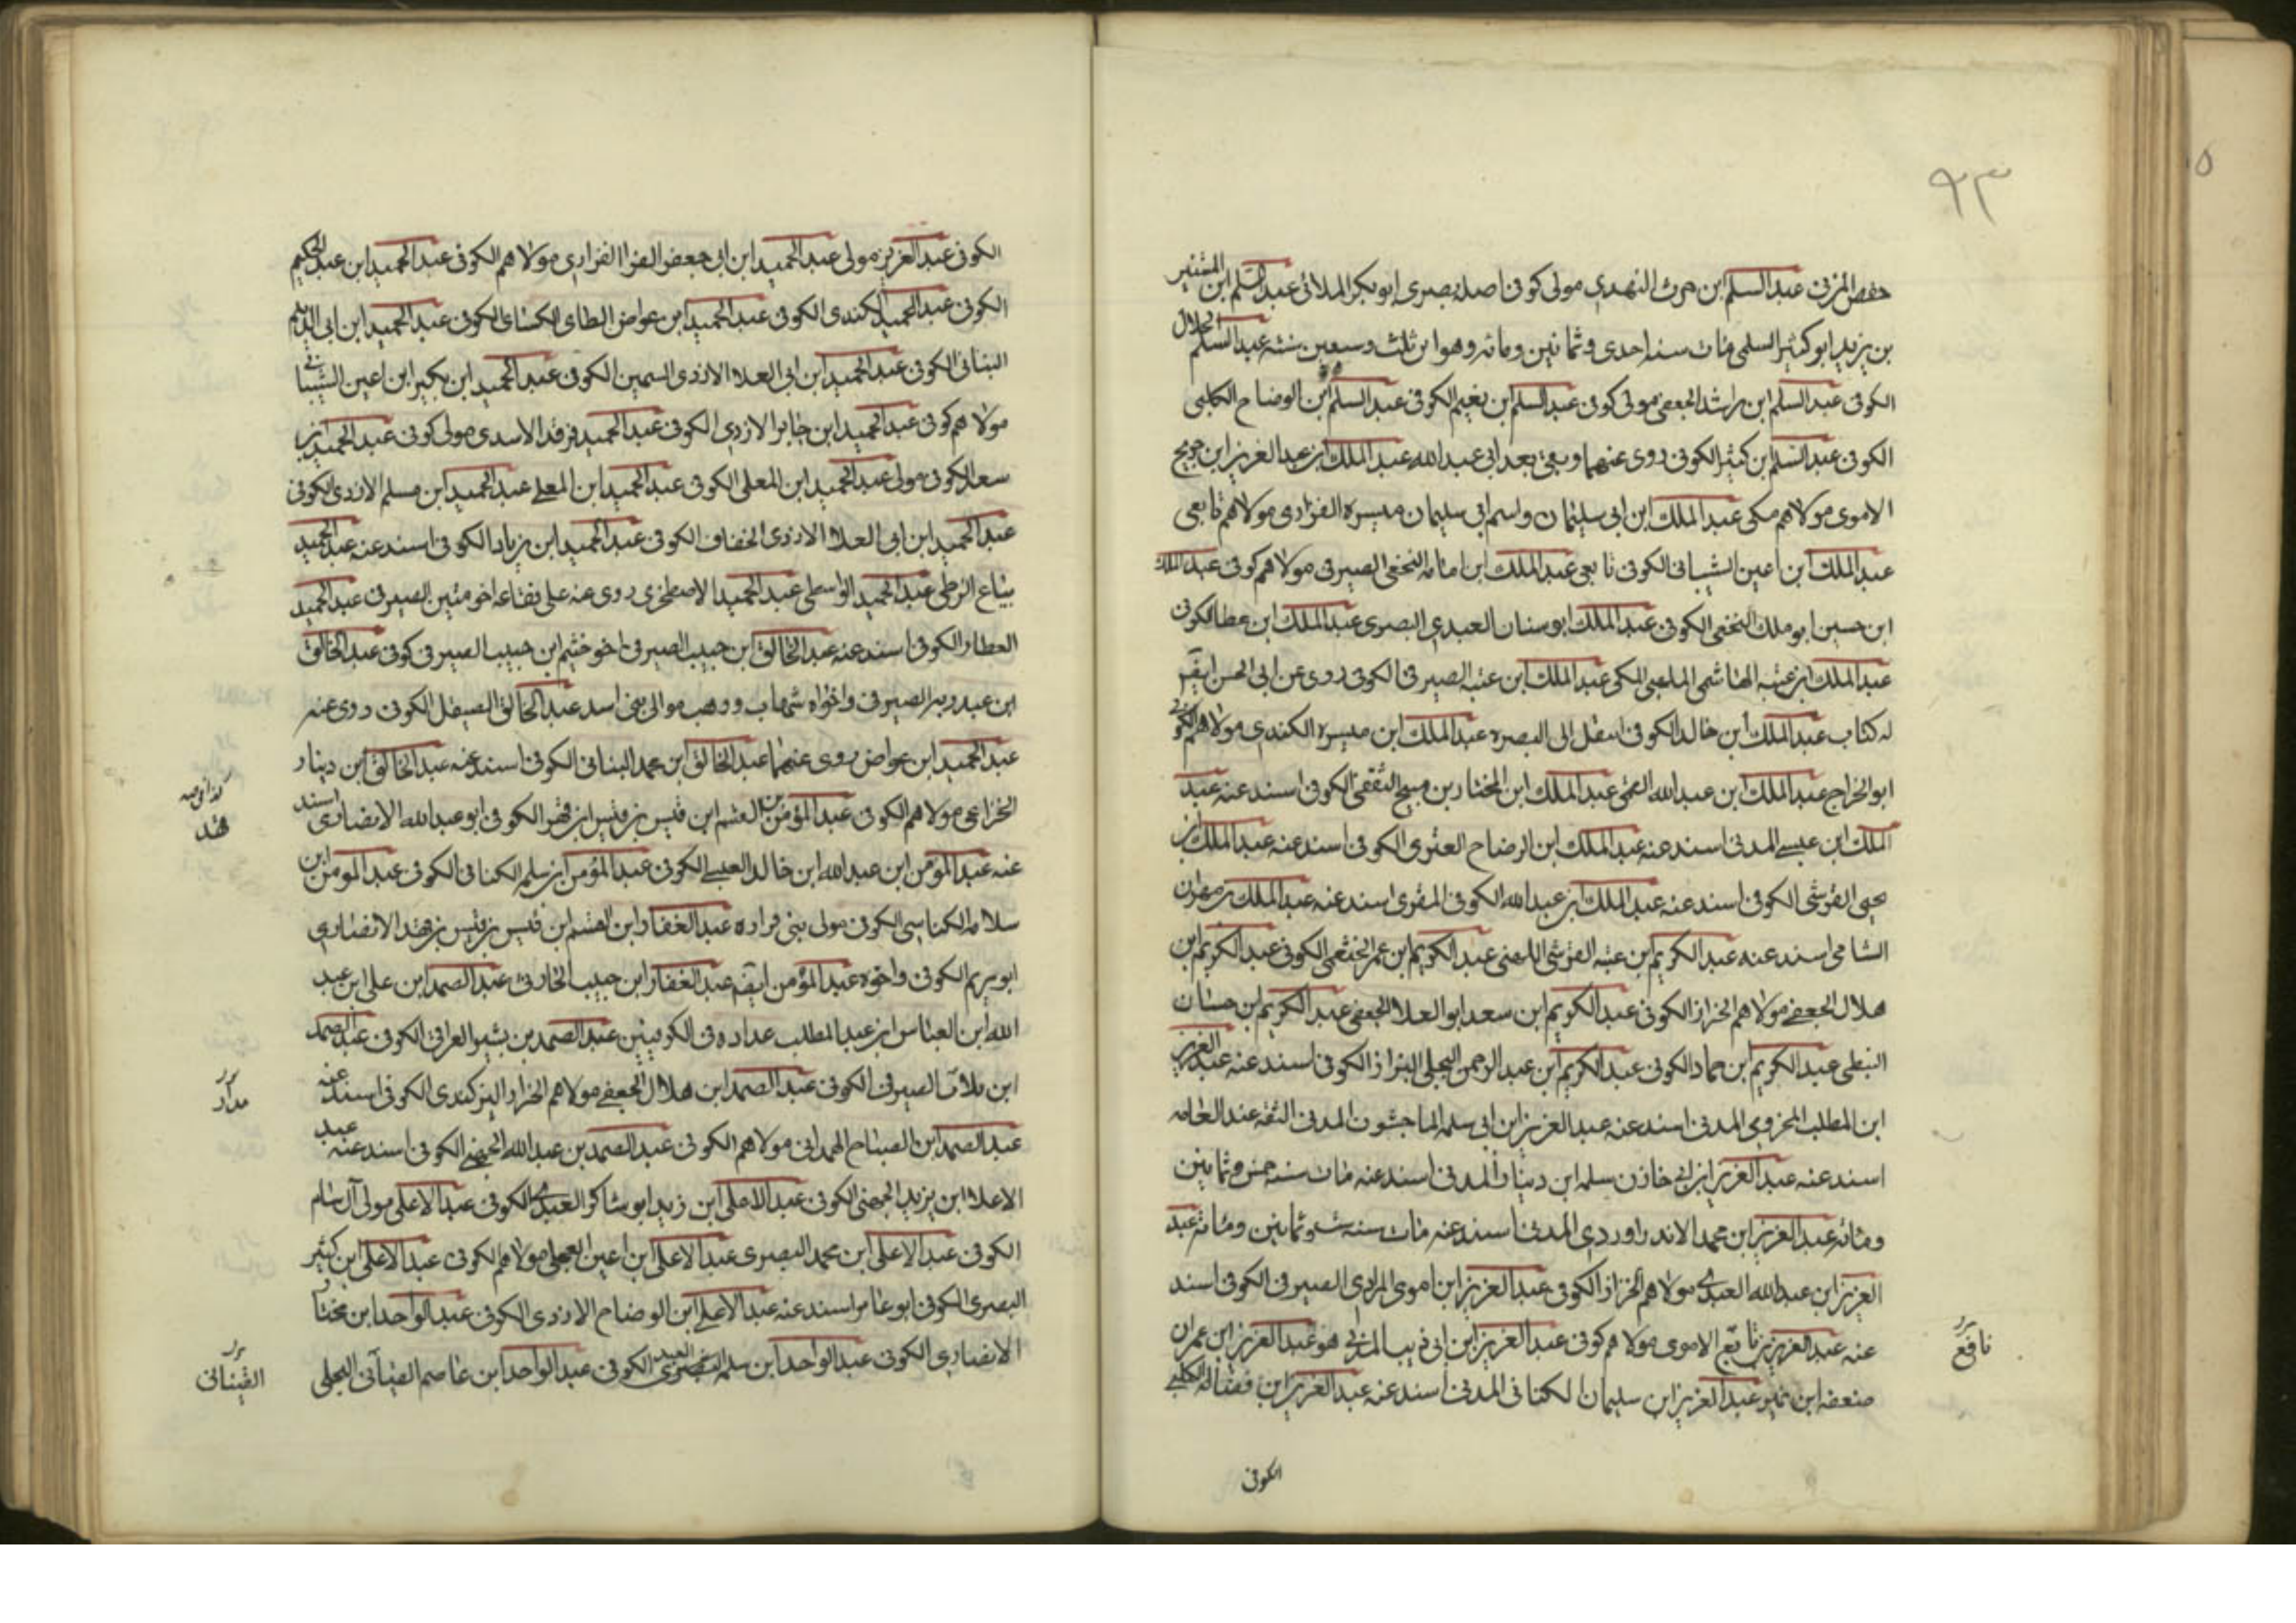 ٩٣
حفص المزنى عبد السلم ابن حرث النهدي مولى كوفى اصله بصرى ابو بكر الملائى عبد السلم ابن المشنير
بن يزيد ابو كثير السلمى مات سنه احدى وثمانين ومائه وهو ابن ثلث وسبعين سنه عبد السلم الحلال
الكوفى عبد السلم ابن راشد الجعفى مولى كوفى عبد السلم ابن نعيم الكوفى عبد السلم ابن الوضاح الكلبى
الكوفى عبد السلم ابن كثير الكوفى روى عنهما وبقى بعد ابى عبد الله عبد الملك ابن عبد العزيز ابن جريج
الاموى مولاهم مكى عبد الملك ابن ابى سليمان واسم ابى سليمان ميسره الفزارى مولاهم تابعى
عبد الملك ابن اعين الشيبانى الكوفى تابعى عبد الملك ابن امامه النخعى الصيرفى مولاهم كوفى عبد الملك
ابن حسين ابو ملك النخعى الكوفى عبد الملك ابو سنان العبدي البصرى عبد الملك ابن عطا الكوفى
عبد الملك ابن عتبه الهاشمى اللهبى المكى عبد الملك ابن عتبه الصيرفى الكوفى روى عن ابى الحسن ايضا
له كتاب عبد الملك ابن خالد الكوفى انتقل الى البصره عبد الملك ابن ميسره الكندى مولاهم الكوفى
ابو الجراح عبد الملك ابن عبد الله القمى عبد الملك ابن المختار بن مسيح الثقفى الكوفى اسند عنه عبد
الملك ابن عيسى المدنى اسند عنه عبد الملك ابن الوضاح العنزى الكوفى اسند عنه عبد الملك ابن
يحيى القرشى الكوفى اسند عنه عبد الملك ابن عبد الله الكوفى المقرى اسند عنه عبد الملك بن مهران
الشامى اسند عنه عبد الكريم بن عتبه القرشى اللهبى عبد الكريم ابن عمر الخثعمى الكوفى عبد الكريم ابن
هلال الجعفى مولاهم الخزاز الكوفى عبد الكريم ابن سعد ابو العلا الجعفى عبد الكريم ابن حسان
النبطى عبد الكريم ابن حماد الكوفى عبد الكريم ابن عبد الرحمن البجلى البزاز الكوفى اسند عنه عبد العزيز
ابن المطلب المخزومى المدنى اسند عنه عبد العزيز ابن ابى سلمه الماجشون المدنى الثقه عند العامه
اسند عنه عبد العزيز ابن ابى حازن سلمه ابن دينار المدنى اسند عنه مات سنه خمس وثمانين
ومائه عبد العزيز ابن محمد الاندراوردى المدنى اسند عنه مات سنه ست وثمانين ومائه عبد
العزيز ابن عبد الله العبدى مولاهم الخزاز الكوفى عبد العزيز ابن اموى المرادى الصيرفى الكوفى اسند
عنه عبد العزيز بن تابع الاموى مولاهم كوفى عبد العزيز ابن ابى ذيب المدنى هو عبد العزيز ابن عمران
ضعفه ابن نمير عبد العزيز ابن سليمان الكنانى المدنى اسند عنه عبد العزيز ابن فضاله الكلبى
نافع
الكوفى
الكوفى عبد العزيز مولى عبد الحميد ابن ابى جعفر الفرا الفزارى مولاهم الكوفى عبد الحميد ابن عبد الحكيم
الكوفى عبد الحميد الكندى الكوفى عبد الحميد ابن عواض الطاى الكسائى الكوفى عبد الحميد ابن ابى الديلم
البنانى الكوفى عبد الحميد ابن ابى العلا الازدى السمين الكوفى عبد الحميد ابن بكير ابن اعين الشيبانى
مولاهم كوفى عبد الحميد ابن جابر الازدي الكوفى عبد الحميد فرقد الاسدى مولى كوفى عبد الحميد بن
سعد الكوفى مولى عبد الحميد ابن المعلى الكوفى عبد الحميد ابن المعلى عبد الحميد ابن مسلم الازدى الكوفى
عبد الحميد ابن ابى العلا الازدى الخفاف الكوفى عبد الحميد ابن زياد الكوفى اسند عنه عبد الحميد
بياع الزطى عبد الحميد الواسطى عبد الحميد الاصطخرى روى عنه على بقاعه اخو مثين الصيرفى عبد الحميد
العطار الكوفى اسند عنه عبد الخالق ابن حبيب الصيرفى اخو خثيم ابن حبيب الصيرفى كوفى عبد الخالق
ابن عبد ربه الصيرفى واخواه شهاب ووهب موالى بنى اسد عبد الخالق الصيقل الكوفى روى عنه
عبد الحميد ابن عواض روى عنهما عبد الخالق ابن محمد البنانى الكوفى اسند عنه عبد الخالق ابن دينار
الخزاعى مولاهم الكوفى عبد المؤمن بن القسم ابن قيس بن قيس ابن قهد الكوفى ابو عبد الله الانصارى اسند
عنه عبد المومن ابن عبد الله ابن خالد العبسى الكوفى عبد المؤمن ابن سلمه الكنانى الكوفى عبد المومن ابن
سلامه الكناسى الكوفى مولى بنى فراده عبد الغفار ابن القسم ابن قيس بن قيس بن قهد الانصارى
ابو مريم الكوفى واخوه عبد المؤمن ايضه عبد الغفار ابن حبيب الحارثى عبد الصمد ابن على ابن عبد
الله ابن العباس ابن عبد المطلب عداده فى الكوفيين عبد الصمد بن بشير العرامى الكوفى عبد الصمد
ابن بلاق الصيرفى الكوفى عبد الصمد ابن هلال الجعفى مولاهم الخزاز البزكندى الكوفى اسند عنه
عبد الصمد ابن الصباح الهمدانى مولاهم الكوفى عبد الصمد بن عبد الله الجهنى الكوفى اسند عنه عبد
الاعلا ابن يزيد الجهنى الكوفى عبد الاعلى ابن زيد ابو شاكر العبدى الكوفى عبد الاعلى مولى آل سام
الكوفى عبد الاعلى ابن محمد البصرى عبد الاعلى ابن اعين العجلى مولاهم الكوفى عبد الاعلى ابن كثير
البصرى الكوفى ابو عامر اسند عنه عبد الاعلى ابن الوضاح الازدى الكوفى عبد الواحد ابن مختار
الانصارى الكوفى عبد الواحد ابن سلمه الكوفى عبد الواحد ابن عاصم القينانى البجلى
قهد
مدار
القينانى